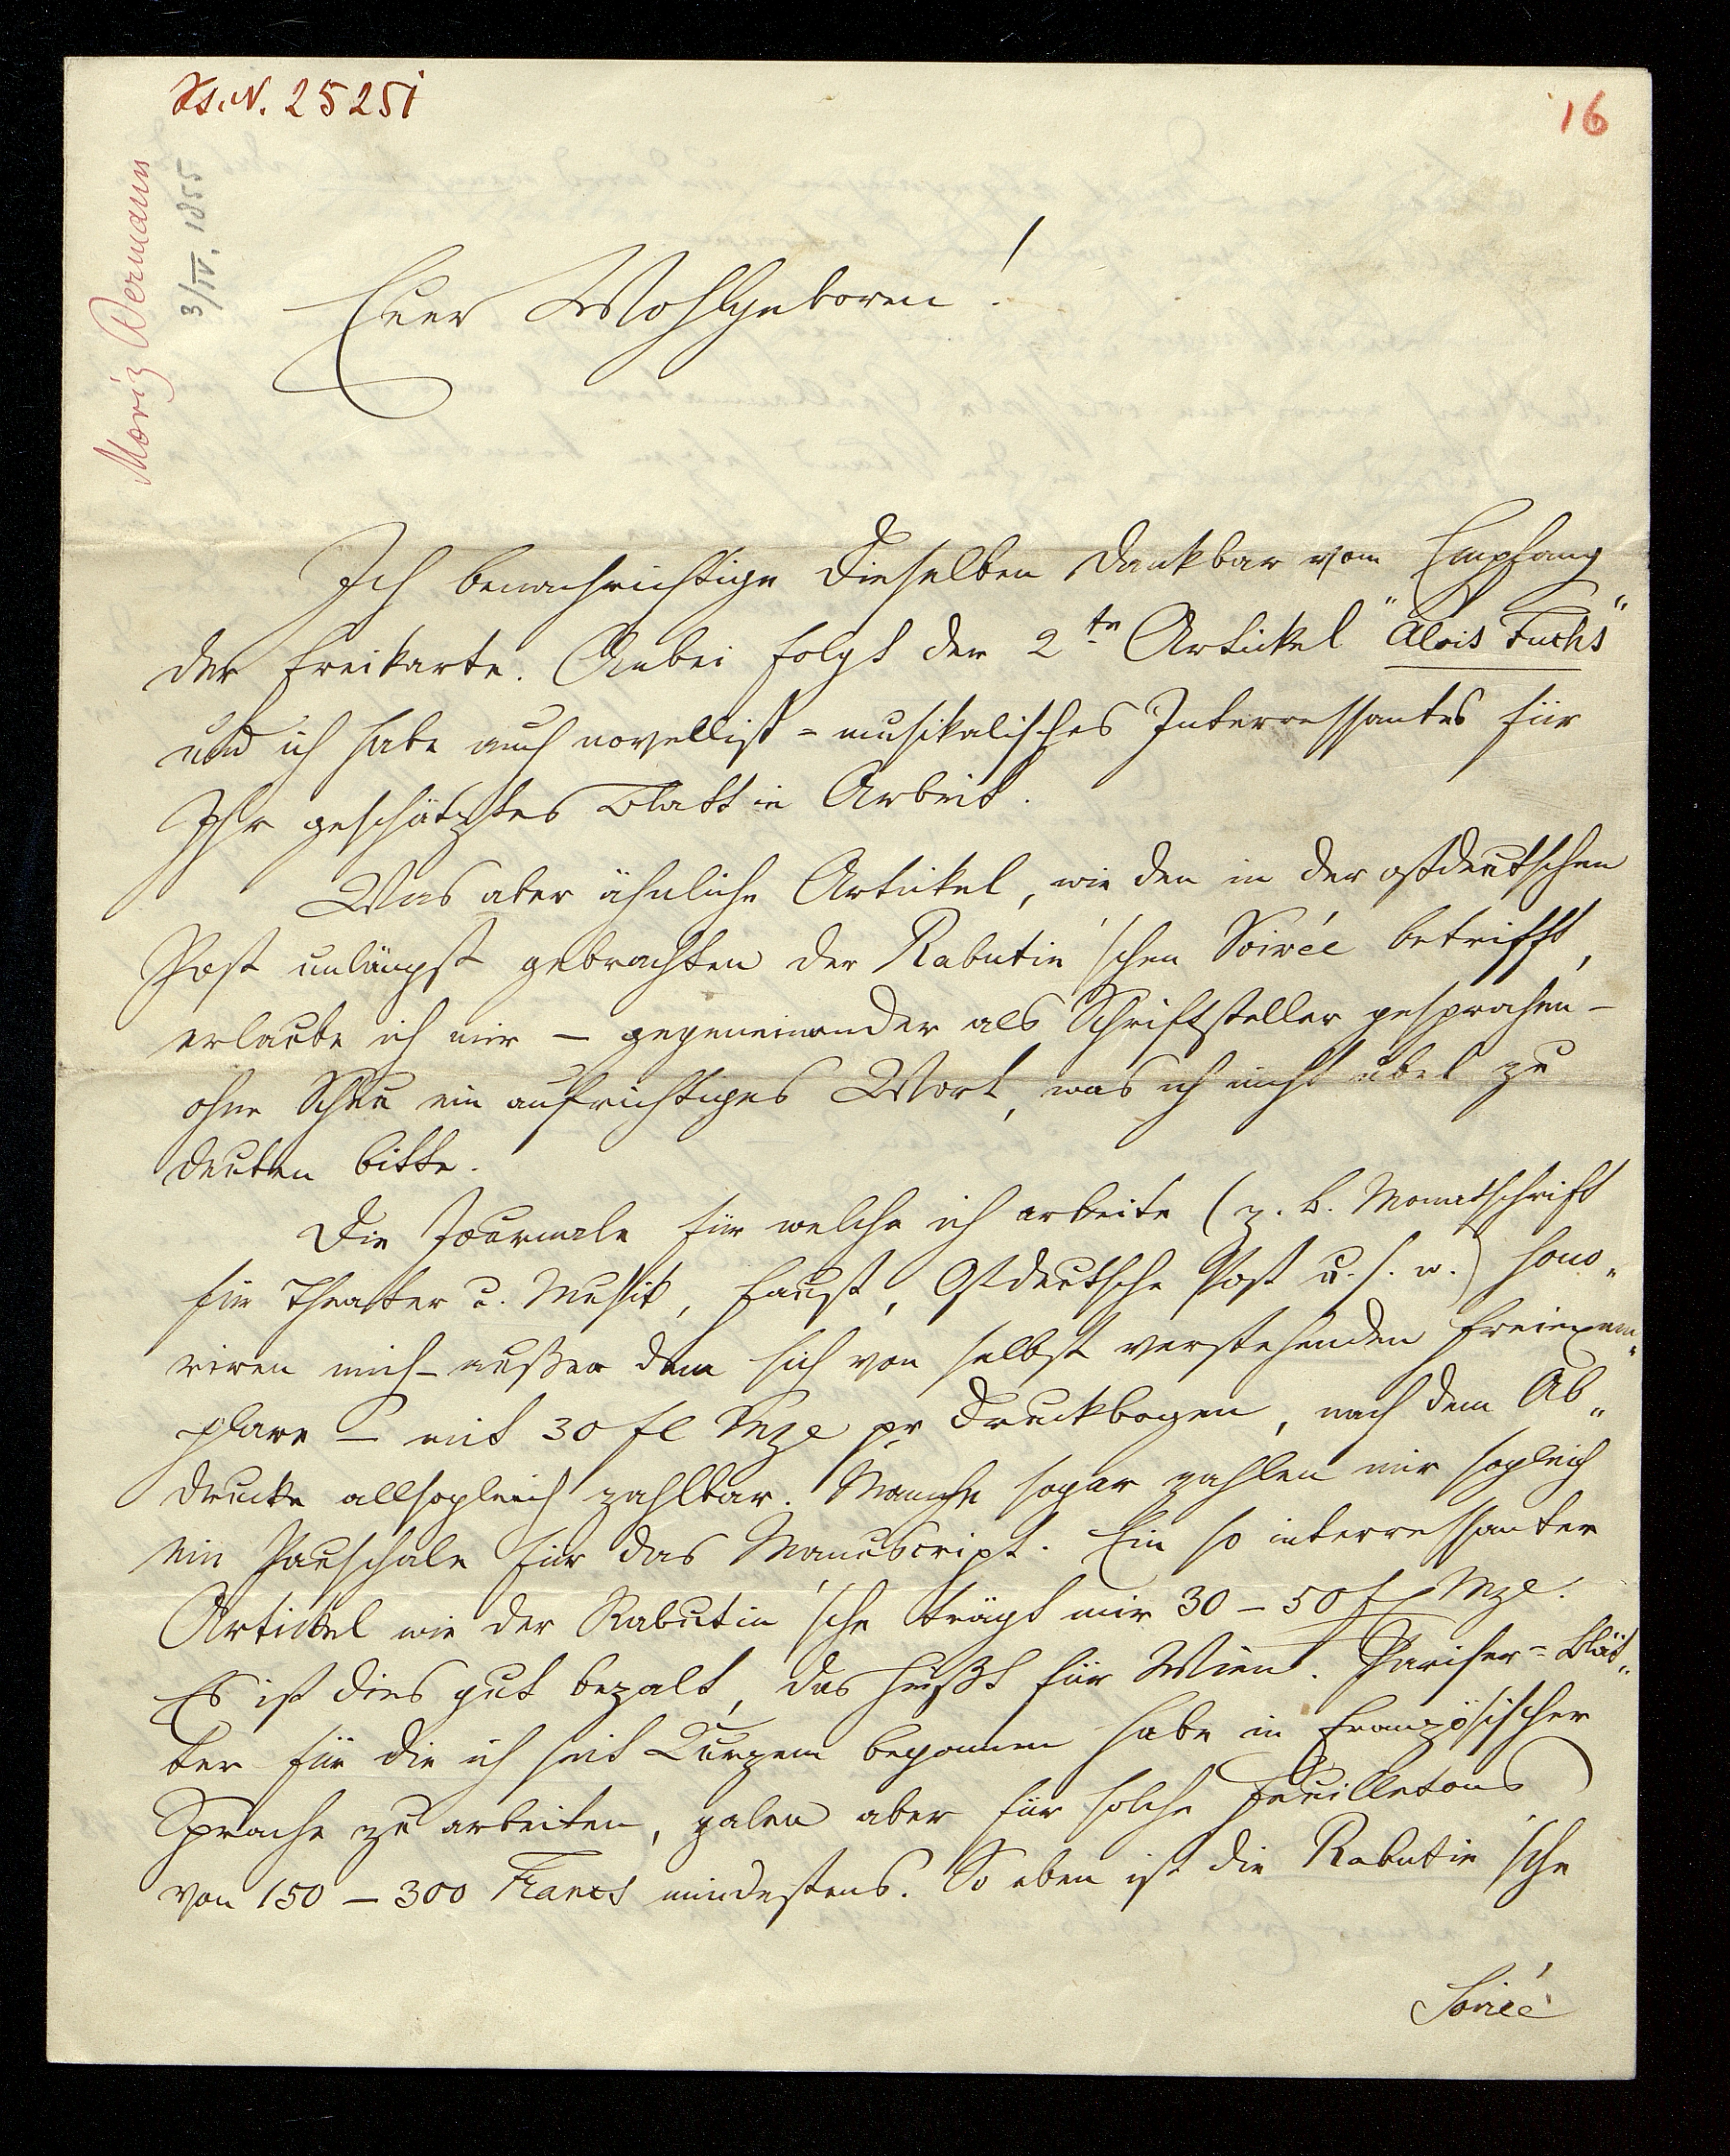 Hs. N. 25251
16
Moriz Bermann
3/IV. 1855
Euer Wohlgeboren!
Ich benachrichtige Dieselben dankbar vom Empfang
der Freikarte. Anbei folgt der 2te Artikel "Alois Fuchs"
und ich habe auch novellist=musikalisches Interressantes für
Ihr geschätztes Blatt in Arbeit.
Was aber ähnliche Artikel, wie den in der ostdeutschen
Post unlängst gebrachten der Rabutin'schen Soirée betrifft,
erlaube ich mir – gegeneinander als Schriftsteller gesprochen –
ohne Scheu ein aufrichtiges Wort, was ich nicht übel zu
deuten bitte.
Die Journale für welche ich arbeite (z. B. Monatschrift
für Theater u. Musik, Faust, Ostdeutsche Post u. s. w.) hono„
riren mich – außer dem sich von selbst verstehenden Freiexem„
plare – mit 30 fl Mze pr Druckbogen, nach dem Ab„
drucke allsogleich zahlbar. Manche sogar zahlen mir sogleich
ein Pauschale für das Manuscript. Ein so interressanter
Artickel wie der Rabutin'sche trägt mir 30 – 50 fl Mze.
Es ist dies gut bezalt, das heißt für Wien. Pariser=Blät„
ter für die ich seit Kurzem begonnen habe in französischer
Sprache zu arbeiten, zalen aber für solche Feuilletons
von 150 – 300 Francs mindestens. So eben ist die Rabutin'sche
Soirée